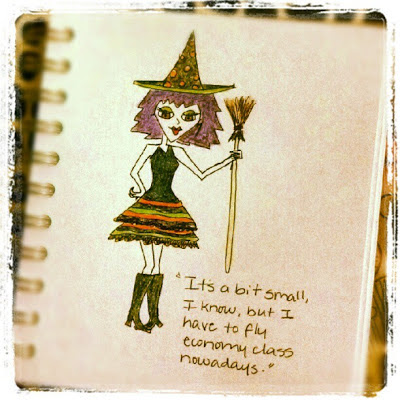 "Its a bit small,
I know, but I
have to fly
economy class
nowadays."